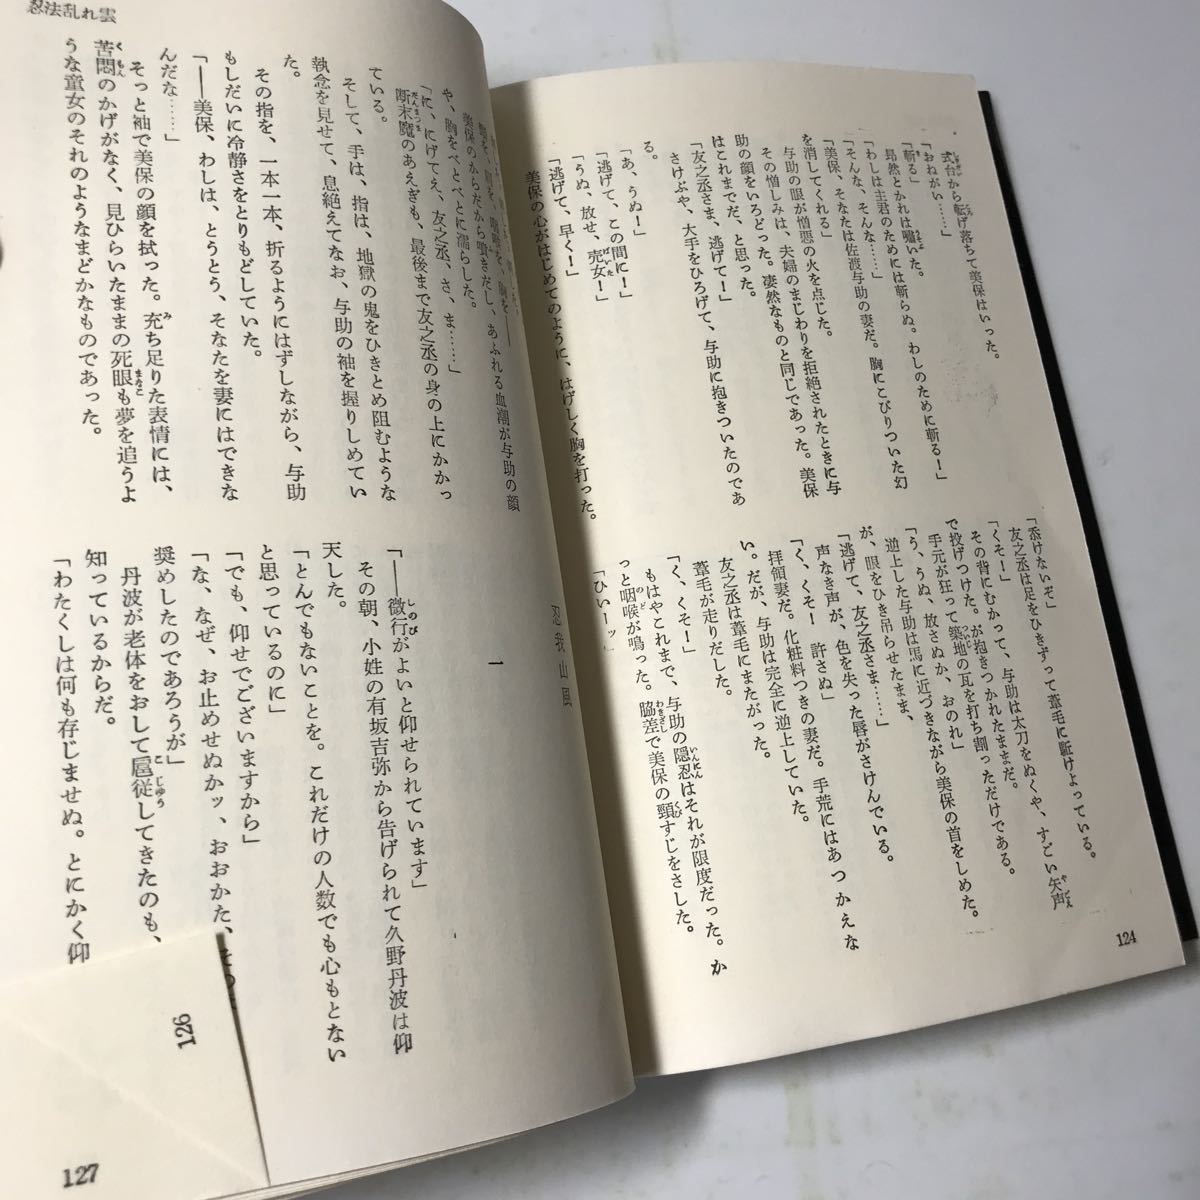 式台から転げ落ちて美保はいった。
「おねがい……」
「斬る」
昂然とかれは囁いた。
「わしは主君のためには斬らぬ。わしのために斬る！」
「そんな、そんな……」
「美保、そなたは佐渡与助の妻だ。胸にこびりついた幻
を消してくれる」
与助の眼が憎悪の火を点じた。
その憎しみは、夫婦のまじわりを拒絶されたときに与
助の顔をいろどった。凄然なものと同じであった。美保
はこれまでだ、と思った。
「友之丞さま、逃げて！」
さけぶや、大手をひろげて、与助に抱きついたのであ
る。
「あ、うぬ！」
「逃げて、この間に！」
「うぬ、放せ、売女！」
「逃げて、早く！」
美保の心がはじめてのように、はげしく胸を打った。
「忝けないぞ」
友之丞は足をひきずって葦毛に駈けよっている。
「くそ！」
その背にむかって、与助は太刀をぬくや、すごい矢声
で投げつけた。が抱きつかれたままだ。
手元が狂って築地の瓦を打ち割っただけである。
「う、うぬ、放さぬか、おのれ」
逆上した与助は馬に近づきながら美保の首をしめた。
が、眼をひき吊らせたまま、
「逃げて、友之丞さま……」
声なき声が、色を失った唇がさけんでいる。
「く、くそ！　許さぬ」
拝領妻だ。化粧料つきの妻だ。手荒にはあつかえな
い。だが、与助は完全に逆上していた。
友之丞は葦毛にまたがった。
葦毛が走りだした。
「く、くそ！」
もはやこれまで、与助の隠忍はそれが限度だった。か
っと咽喉が鳴った。脇差で美保の頸すじをさした。
「ひいーッ」
124
忍法乱れ雲
美保のからだから噴きだし、あふれる血潮が与助の顔
や、胸をべとべとに濡らした。
「に、にげてえ、友之丞、さ、ま……」
断末魔のあえぎも、最後まで友之丞の身の上にかかっ
ている。
そして、手は、指は、地獄の鬼をひきとめ阻むような
執念を見せて、息絶えてなお、与助の袖を握りしめてい
た。
その指を、一本一本、折るようにはずしながら、与助
もしだいに冷静さをとりもどしていた。
「――美保、わしは、とうとう、そなたを妻にはできな
んだな……」
そっと袖で美保の顔を拭った。充ち足りた表情には、
苦悶のかげがなく、見ひらいたままの死眼も夢を追うよ
うな童女のそれのようなまどかなものであった。
忍我山風
一
「――微行がよいと仰せられています」
その朝、小姓の有坂吉弥から告げられて久野丹波は仰
天した。
「とんでもないことを。これだけの人数でも心もとない
と思っているのに」
「でも、仰せでございますから」
「な、なぜ、お止めせぬかッ、おおかた、
奨めしたのであろうが」
丹波が老体をおして扈従してきたのも、
知っているからだ。
「わたくしは何も存じませぬ。とにかく仰
126
127